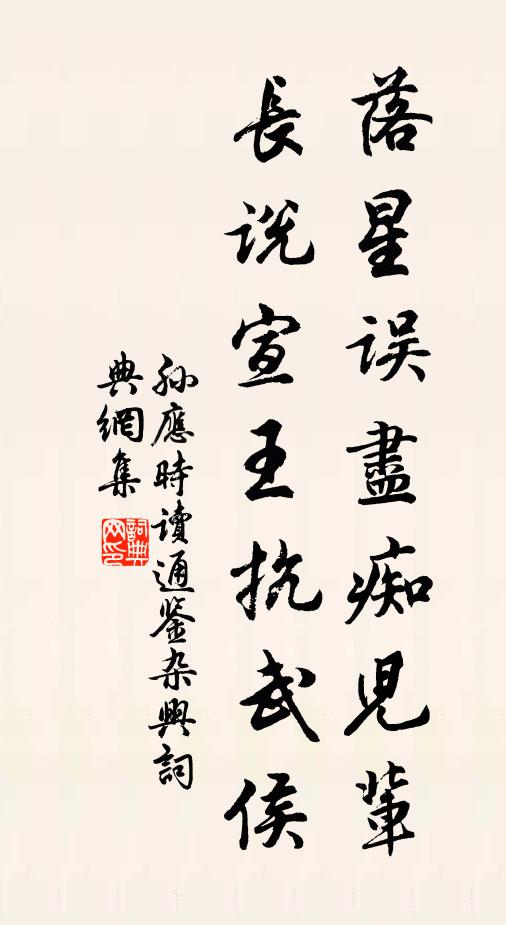 落星误盡痴兒輩
長说宣王抗武侯
孙應時读通鉴杂興詞
典網集
詞典网印